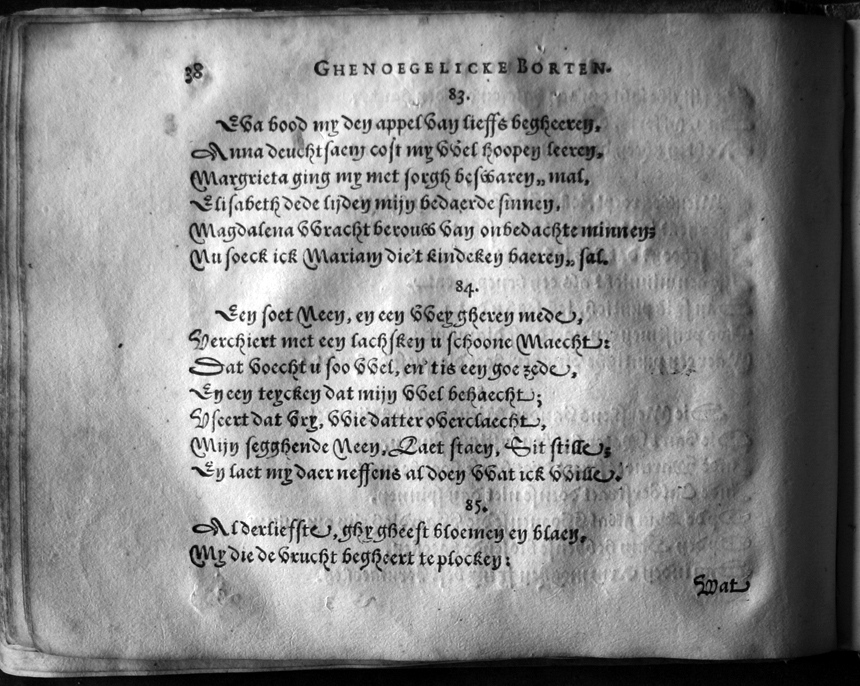 38 GHENOEGELICKE BORTEN.
83.
Eva bood my den appel van lieffs begheeren,
Anna deuchtsaem cost my wel hoopen leeren,
Margrieta ging my met sorgh beswaren„ mal,
Elisabeth dede lijden mijn bedaerde sinnen,
Magdalena wracht berouw van onbedachte minnen;
Nu soeck ick Mariam die't kindeken baeren„ sal.
84.
Een soet Neen, en een weygheren mede,
Verchiert met een lachsken u schoone Maecht:
Dat voecht u soo wel, en' tis een goe zede,
En een teycken dat mijn wel behaecht;
Vseert dat vry, wie datter overclaecht,
Mijn segghende Neen, Laet staen, Sit stille;
En laet my daer neffens al doen wat ick wille.
85.
Alderliefste, ghy gheeft bloemen en blaen,
My die de vrucht begheert te plocken:
Wat